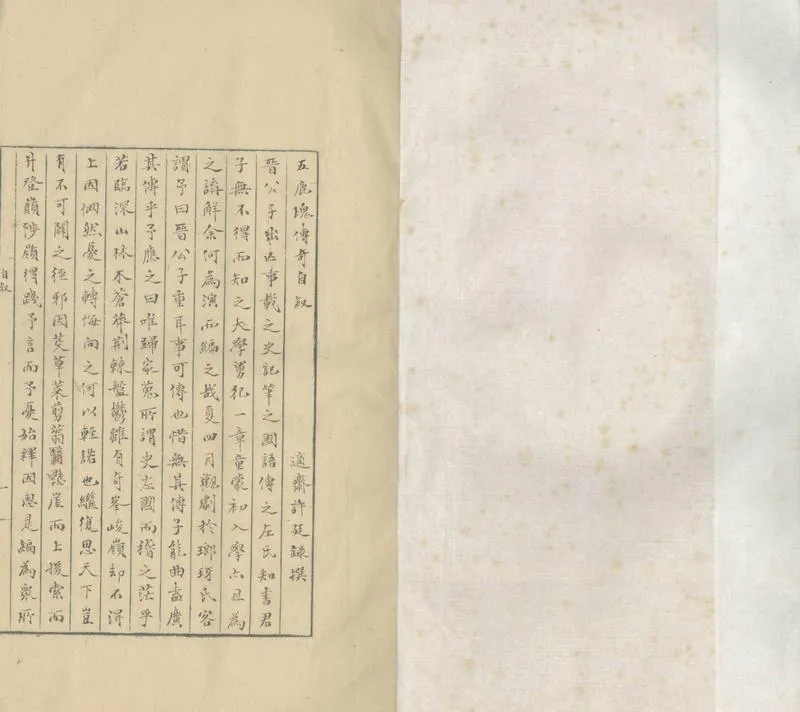 五鹿塊傳奇自敘
適齋許廷錄撰
晉公子出亡事載之史記筆之國語傳之左氏知書君
子無不得而知之大學舅犯一章童蒙初入學六且為
之講解余何為演而編之哉夏四月觀劇於瑯琊氏客
謂予曰晉公子重耳事可傳也惜無其傳子能曲盡廣
其傳乎予應之曰唯歸家蒐所謂史左國而稽之茫乎
若臨深山林木蒼莽荆棘盤鬱雖有奇峯峻嶺却不得
上因惘然憂之轉悔向之何以輕諾也繼復思天下豈
有不可闢之徑邪因芟草菜剪蓊翳懸崖而上援索而
升登巔陟嶺得踐予言而予憂始釋因思是編為衆所
自敘
一